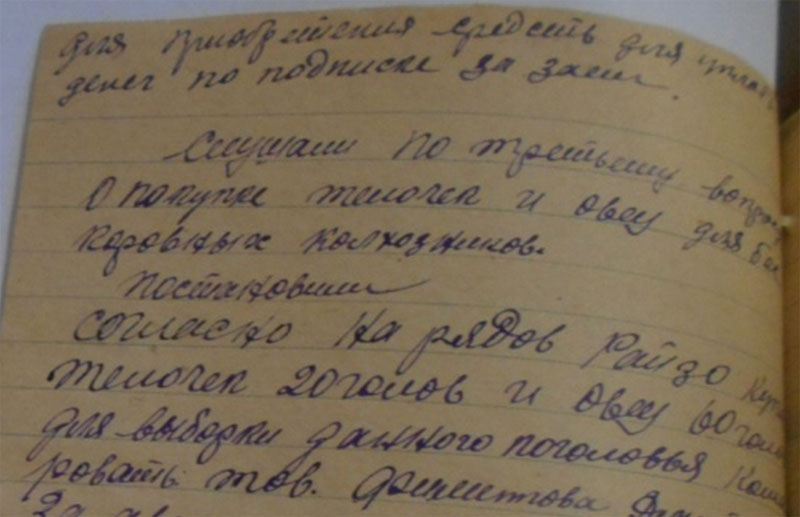 для приобретения средств для
денег по подписке за заем.
Слушали по третьему
О покупке телочек и овец для
коровных колхозников.
постановили
согласно нарядов Райзо
телочек 20 голов и овец 60
для выборки данного поголовья
ровать тов.